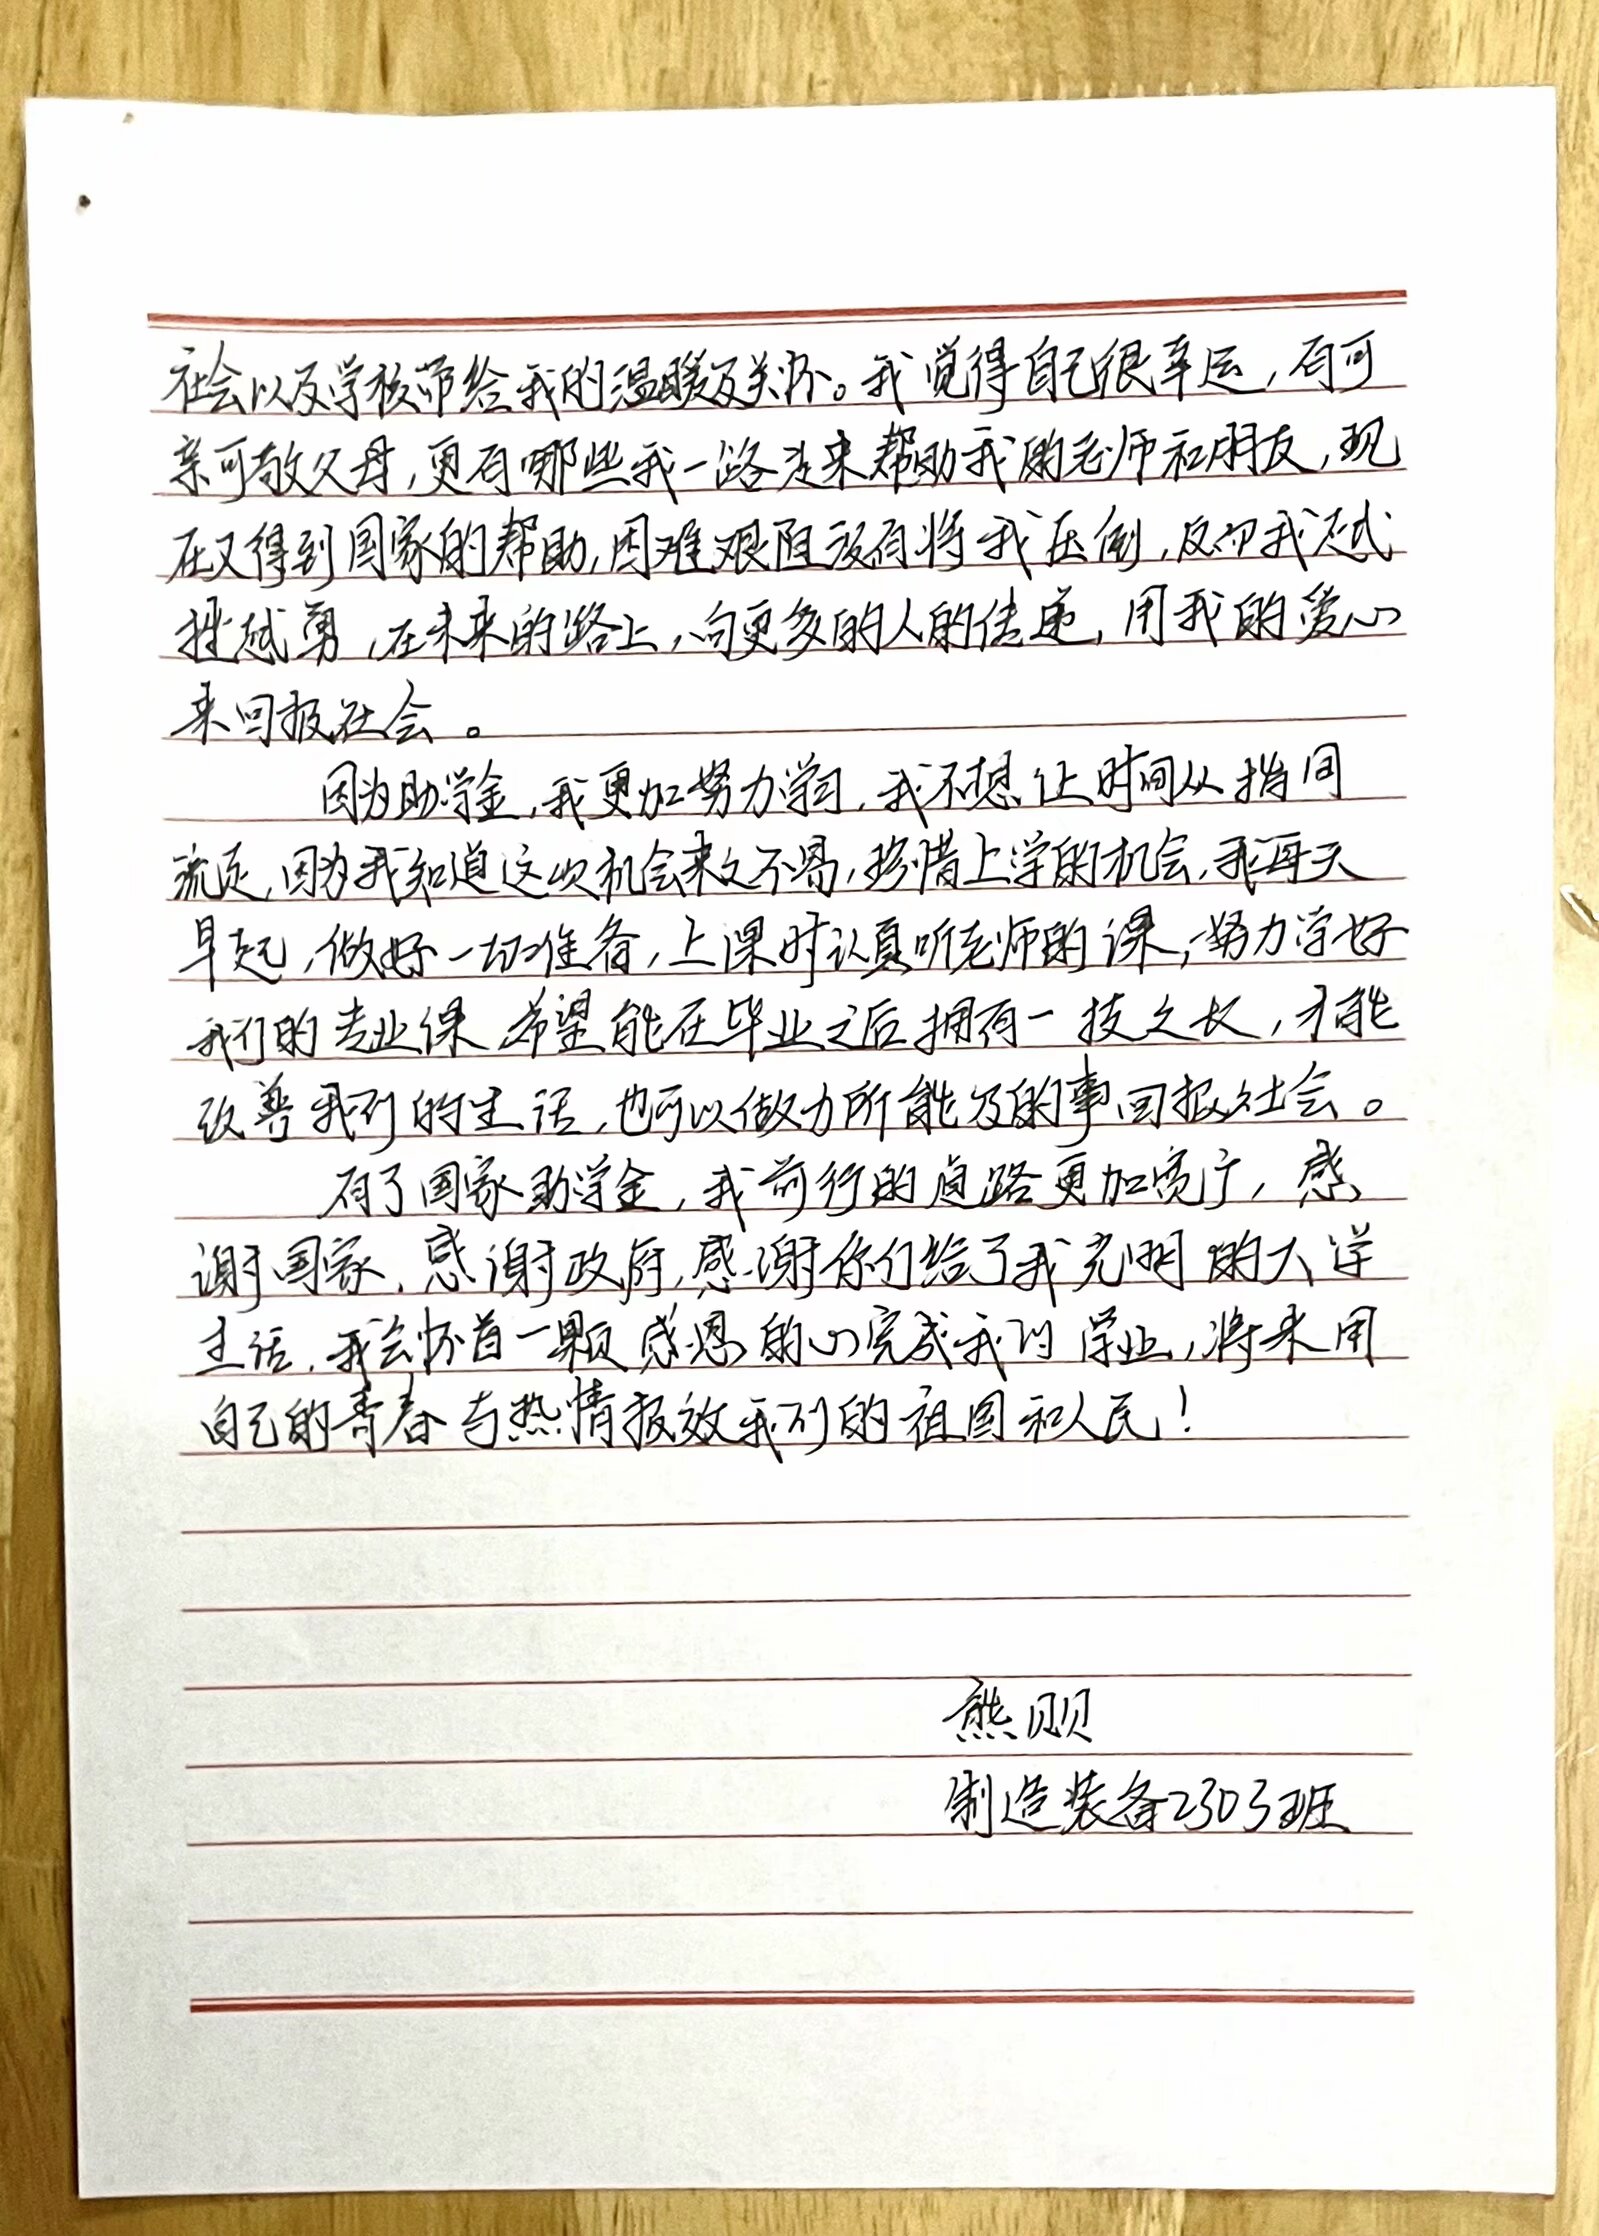 社会以及学校带给我的温暖及关怀。我觉得自己很幸运，有可
亲可敬父母，更有哪些我一路走来帮助我的老师和朋友，现
在又得到国家的帮助，困难艰阻没有将我压倒，反而我越
挫越勇，在未来的路上，向更多的人的传递，用我的爱心
来回报社会。
因为助学金，我更加努力学习，我不想让时间从指间
流逝，因为我知道这次机会来之不易，珍惜上学的机会，我每天
早起，做好一切准备，上课时认真听老师的课，努力学好
我们的专业课 希望能在毕业之后拥有一技之长，才能
改善我们的生活，也可以做力所能及的事回报社会。
有了国家助学金，我前行的道路更加宽广，感
谢国家，感谢政府，感谢你们给了我光明的大学
生活，我会怀着一颗感恩的心完成我的学业，将来用
自己的青春与热情报效我们的祖国和人民！
熊
制造装备2303班